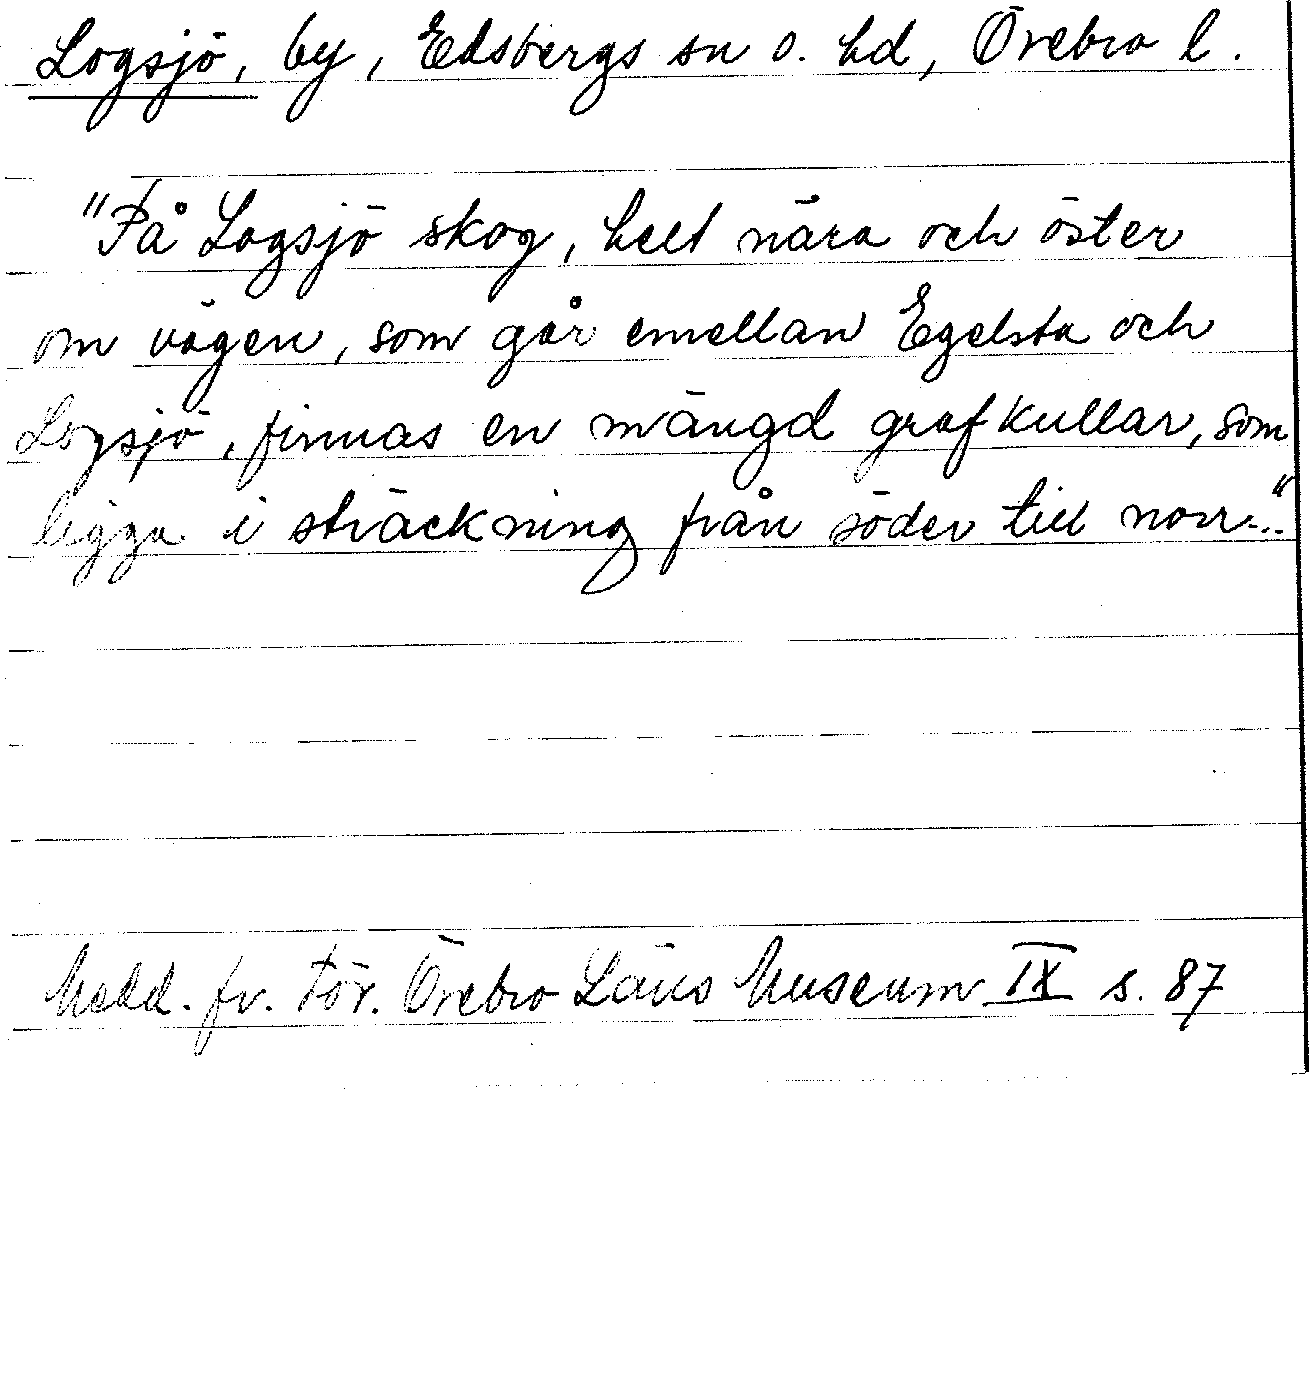 Logsjö, by, Edsbergs sn o. hd, Örebro l.
"På Logsjö skog, helt nära och öster
om vägen, som går emellan Egelsta och
Logsjö, finnas en mängd grafkullar, som
ligga i sträckning från söder till norr..."
Medd. fr. För. Örebro Läns Museum IX s. 87